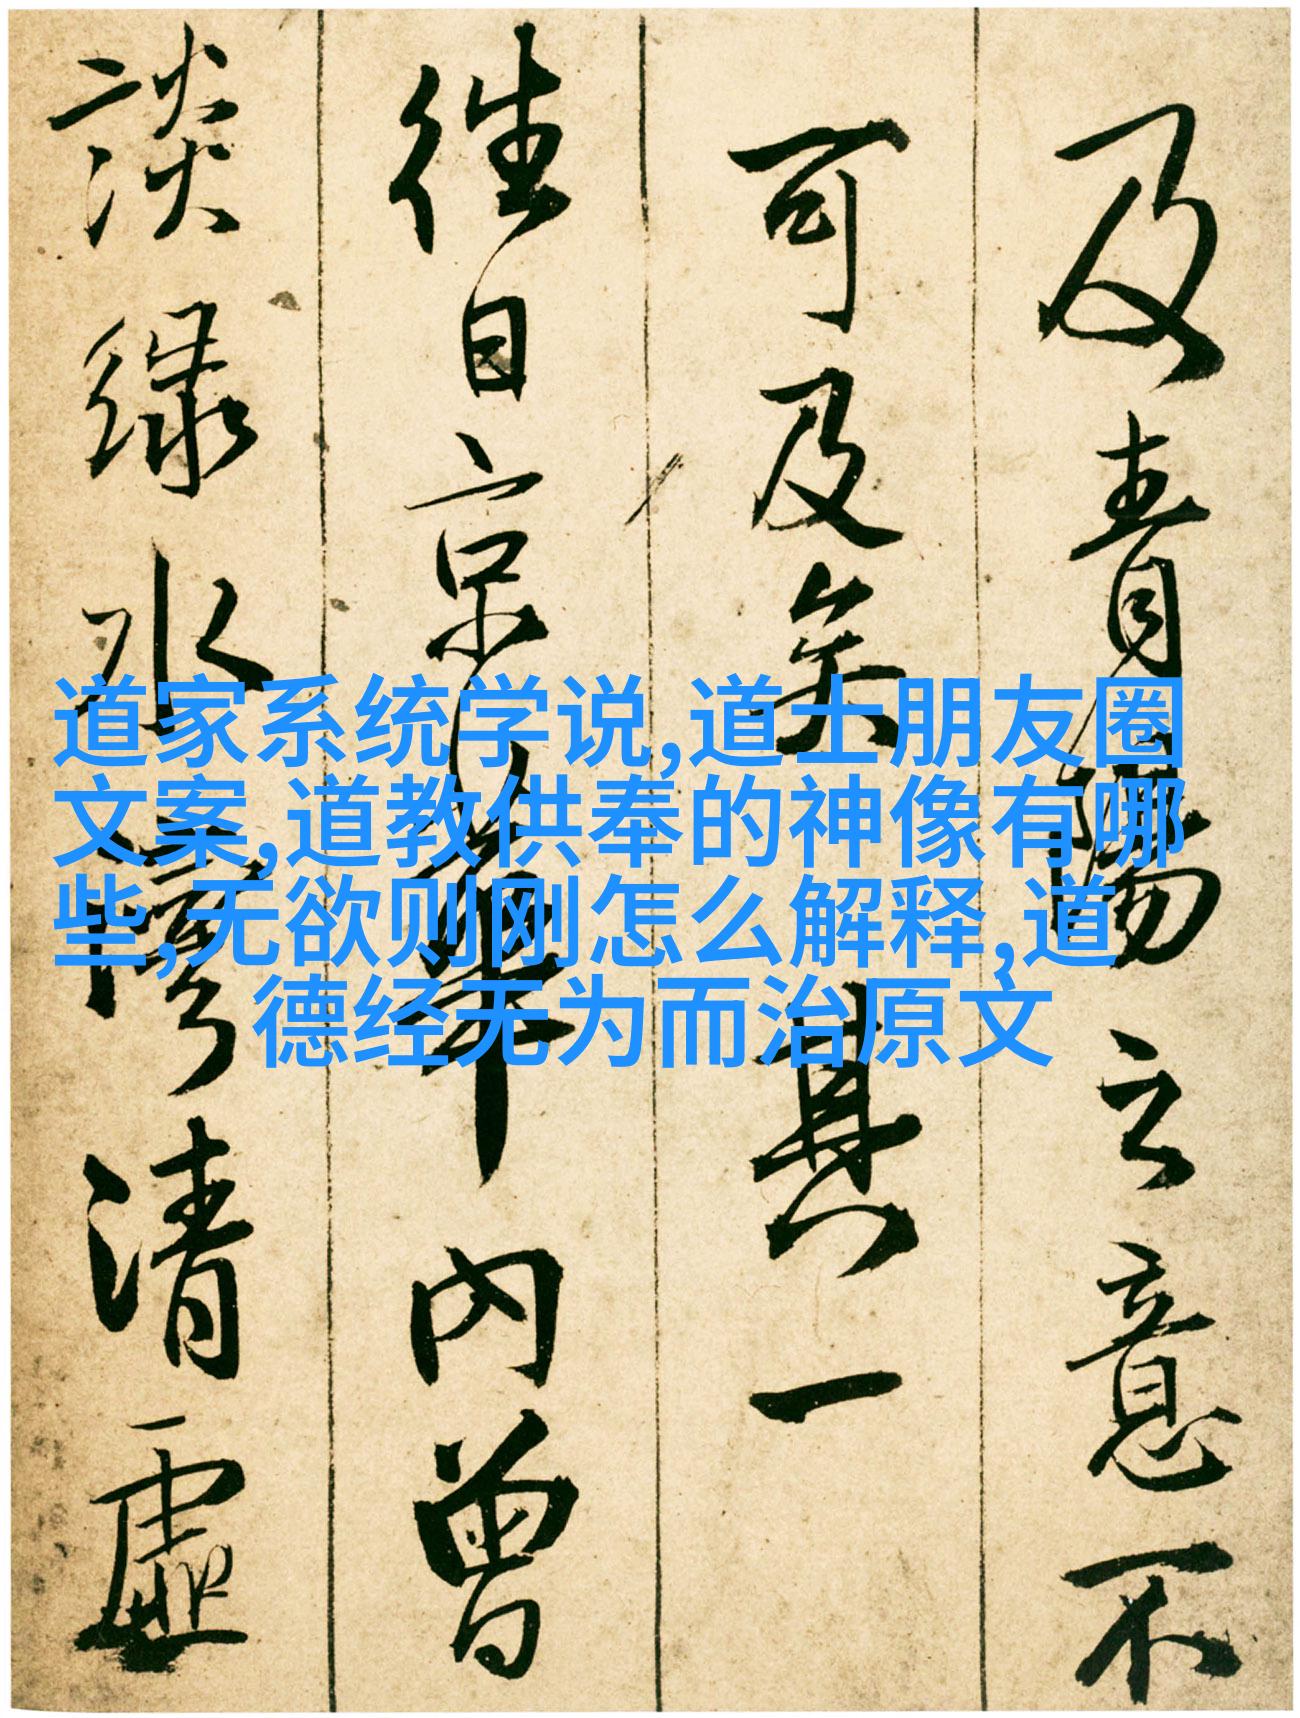 及青陽之意不
可及矣其一
往日京華內曾
談綠水灣清虛
道家系统学说,道士朋友圈
文案,道教供奉的神像有哪
些,无欲则刚怎么解释,道
德经无为而治原文